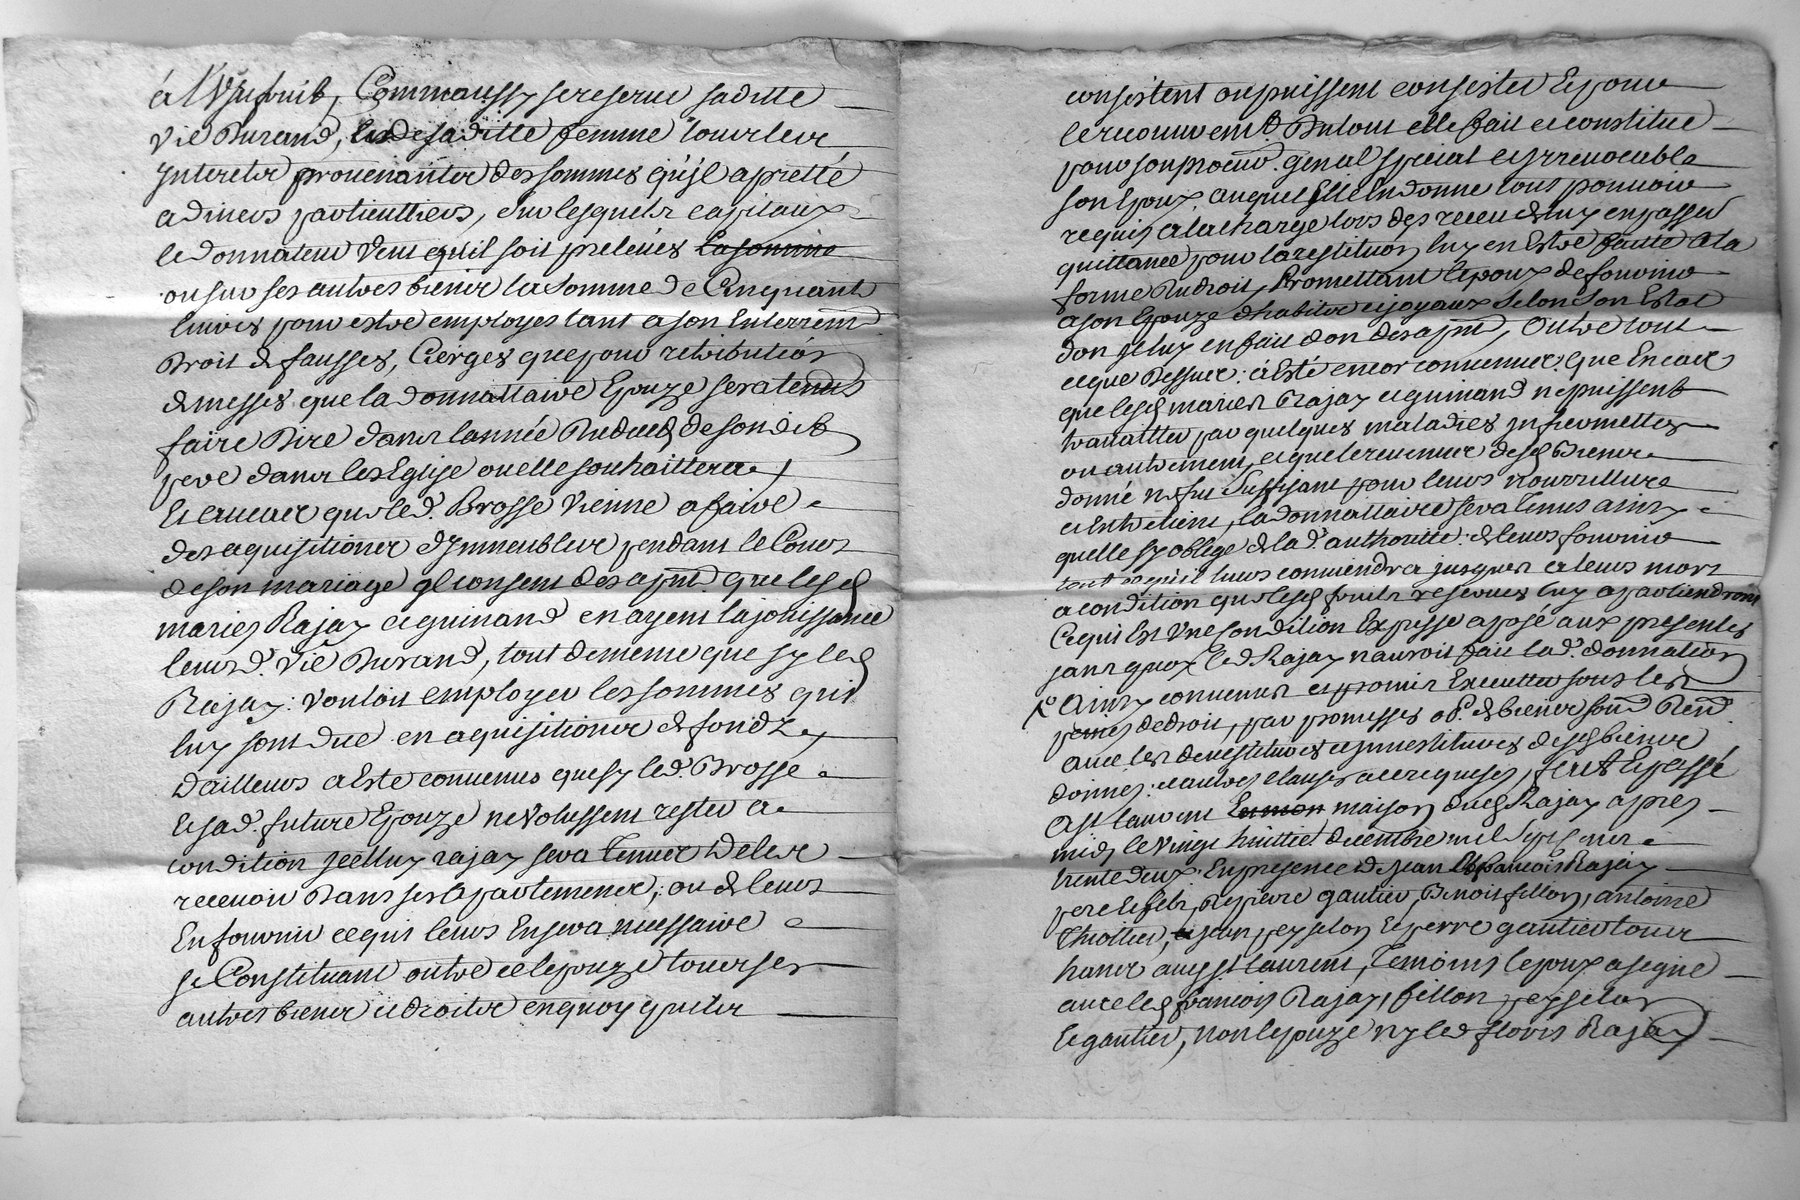 à l'Usufruit, Comm'aussy se reserve sa ditte
vie Durand, et de sa ditte femme tous les
Jnterets provenantes des sommes qu'jl a pretté
a divers particulliers, sur lesquels capitaux
le donnateur veut qu'il soit prelevés la somme
ou sur ses autres biens la Somme de Cinquante
livres pour estre employes tant a son Enterremt
Droit de fausses, Cierges que pour retribution
de messes que la donnattaire Epouze sera tenus
faire Dire dans l'année du deceds de son dit
pere dans les Eglise ou elle souhaittera,
Et en cas que led. Brosse Vienne a faire
des aquisitions d'Jmmeubles pendant le Cours
de son mariage jl consent des apnt. que lesd
mariés Rajay et guinand en ayent la jouissance
leurd. vie Durand, tout de meme que sy led
Rajay vouloit employer les sommes qui
luy sont due en aquisitions de fondz
d'ailleurs a Esté convenus que sy led. Brosse
Et sad. future Epouze ne volussent rester a
condition jcelluy rajay sera Tenue de les
recevoir Dans ses Apartements, ou de leurs
En fournir ce qui leurs En sera necessaire
se Constituant outre ce l'epouze tous ses
autres biens et droits en quoy quils
consistent ou puissent consister Et pour
le recouvremt Du tout elle fait et constitue
pour son procur. genal special et jrrevocable
son Epoux auquel Elle En donne tous pouvoir
requis a la charge lors des receu de luy en passer
quittance pour la restitution luy en Estre faitte a la
forme Du droit, Promettant l'epoux de fournir
a son Epouze d'habits et joyaux selon son Estat
don jl luy en fait don des apnt, Outre tout
ce que Dessus a Esté encor convenus que En cas
que lesd mariés Rajay et guinand ne puissent
travailler par quelques maladies jnfirmettes
ou autrement, et que le revenus desd Biens
donné ne fut suffisant pour leurs nourritture
et Entretient, la donnattaire sera Tenus ainsy
quelle s'y oblige de lad. authoritté de leurs fournir
tout ce qu'il leurs conviendra jusques a leurs mors
a condition que lesd fruits reservés luy apartiendront
Ce qui Est Vne Condition Expresse aposé aux presentes
sans quoy led Rajay n'auroit fait lad. donnation
Ainsy convenus et promis Executter sous les
peines de droit, par promesses ob. de biens soum. Renō.
avec les devestitures et jnvestitures desd biens
donnés et autres clauses a ce requises, fait Et passé
A St laurent En mon maison dud Rajay apres
midy le vingt huittie decembre mil Sept cent
trente deux. En presence de Jean & francois Rajay
pere Et fils, Pierre gautier, Benoit fillon, antoine
Thiollier, et jean peysselon Et pierre gautier tous
hants aud St laurent, Temoins l'epoux a signé
avec lesd francois Rajay, fillon peysselon
Et gautier, non l'epouze ny led floris Rajay